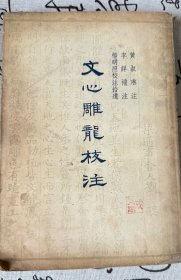 黄叔琳注
李詳補注
楊明照校注拾遺
文心雕龍校注